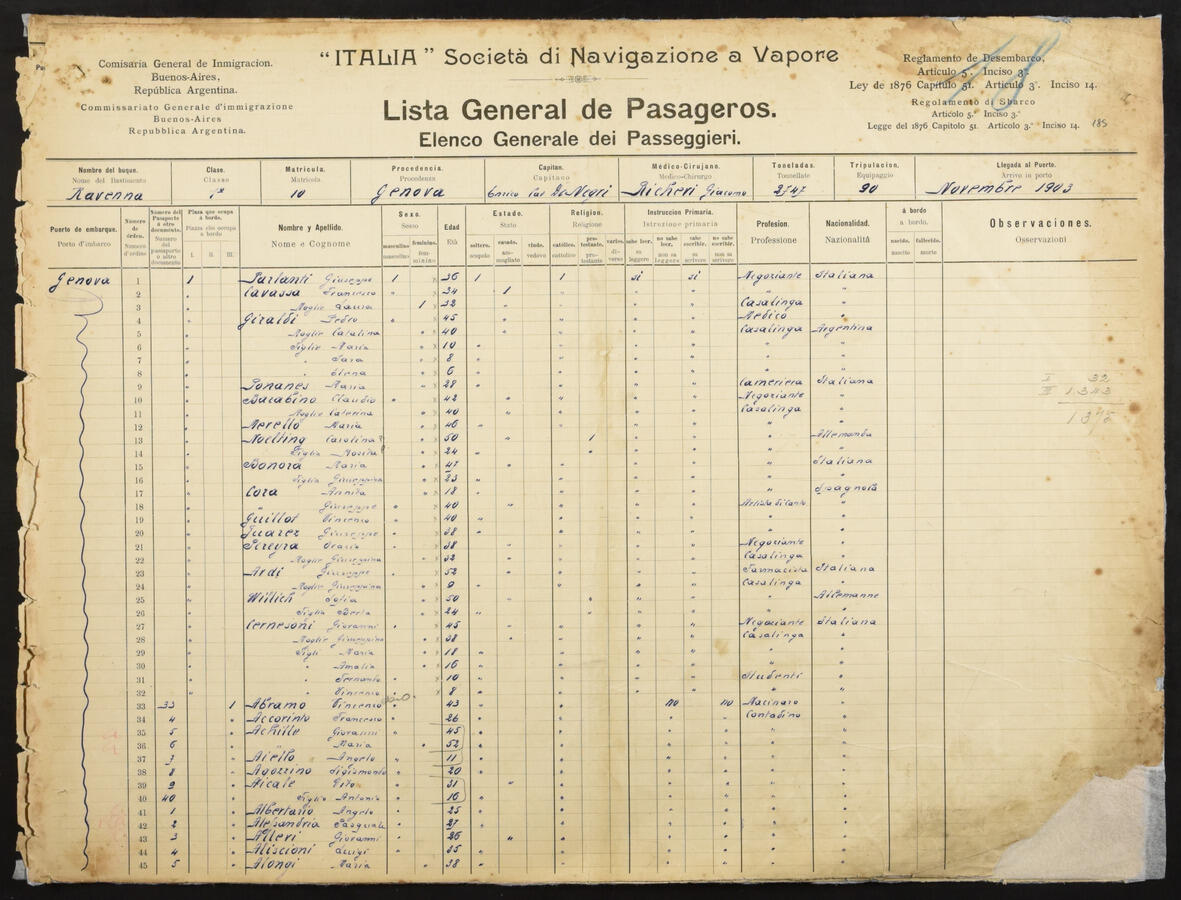 Comisaria General de Inmigracion.
Buenos-Aires,
República Argentina.
Commissariato Generale d'immigrazione
Buenos-Aires
Repubblica Argentina.
"ITALIA" Società di Navigazione a Vapore
Lista General de Pasageros.
Elenco Generale dei Passeggieri.
Reglamento de Desembarco,
Articulo 5. Inciso 3º.
Ley de 1876 Capitulo 51. Articulo 3º. Inciso 14.
Regolamento di Sbarco
Articolo 5.º Inciso 3.º
Legge del 1876 Capitolo 51. Articolo 3.º Inciso 14.
185
Nombre del buque. Clase. Matrícula. Procedencia. Capitan. Médico-Cirujano. Toneladas. Tripulacion. Llegada al Puerto.
Nome del Bastimento Classe Matricola. Procedenza Capitano Medico-Chirurgo Tonnellate Equipaggio Arrivo in porto
Ravenna 1ª 10 Genova Enrico De Negri Richeri Giacomo 2747 90 Novembre 1903
Puerto de embarque. Porto d'imbarco
Número de órden. Numero d'ordine
Número del Pasaporte á otro documento. Numero del Passaporto o altro documento
Plaza que ocupa á bordo. Piazza che occupa a bordo I. II. III.
Nombre y Apellido. Nome e Cognome
Sexo. Sesso masculino maschile feminino. femminino
Edad Età
Estado. Stato soltero. scapolo casado. ammogliato viudo. vedovo
Religion. Religione católica. cattolica protestante. protestante varios. diverse
Instruccion Primaria. Istruzione primaria sabe leer. sa leggere no sabe leer. non sa leggere sabe escribir. sa scrivere no sabe escribir. non sa scrivere
Profesion. Professione
Nacionalidad. Nazionalità
á bordo a bordo nacido. nascito fallecido. morto
Observaciones. Osservazioni
Genova 1 1 Parlanti Giuseppe 1 36 1 1 si si Negoziante Italiana
2 " Cavassa Francesco " 34 1 " " " " "
3 " Moglie Laura 1 32 " " " " Casalinga "
4 " Giraldi Pedro " 45 " " " " Medico "
5 " Moglie Catalina " 40 " " " " Casalinga Argentina
6 " Figlie Maria " 10 " " " " " "
7 " " Sara " 8 " " " " " "
8 " " Elena " 6 " " " " " "
9 " Maria " 28 " " " " Cameriera Italiana
10 " Bacabino Claudio " 42 " " " " Negoziante "
11 " Moglie Caterina " 40 " " " " Casalinga "
12 " Merello Maria " 46 " " " " " "
13 " Noelting Carolina " 50 " 1 " " " Allemanda
14 " Figlia " 24 " " " " "
15 " Bonora Maria " 47 " " " " " Italiana
16 " Figlia Giuseppina " 23 " " " " " "
17 " Cora Annita " 18 " " " " " Spagnola
18 " " Giuseppe " 40 " " " " "
19 " Guillot Vincenzo " 40 " " " " " "
20 " Juarez Giuseppe " 38 " " " " " "
21 " Pereyra " 38 " " " " Negoziante "
22 " Moglie Giuseppina " 32 " " " " Casalinga "
23 " Ardi Giuseppe " 52 " " " " Farmacista Italiana
24 " Moglie Giuseppina " 9 " " " " Casalinga "
25 " Willich Sofia " 50 " " " " " Allemanne
26 " Figlia Berta " 24 " " " " " "
27 " Cernesoni Giovanni " 45 " " " " Negoziante Italiana
28 " Moglie Giuseppina " 38 " " " " Casalinga "
29 " Figli Maria " 18 " " " " " "
30 " " Amalia " 16 " " " " " "
31 " " Fernando " 10 " " " " Studenti "
32 " " Vincenzo " 8 " " " " " "
33 33 1 Abramo Vincenzo " 43 " " no no Macinaro "
34 4 " Accorinto Francesco " 26 " " " " Contadino "
35 5 " Achille Giovanni " 45 " " " " " "
36 6 " " Maria " 52 " " " " " "
37 7 " Aiello Angelo " 11 " " " " " "
38 8 " Agozzino Sigismondo " 20 " " " " " "
39 9 " Aicale Vito " 31 " " " " " "
40 40 " Figlio Antonio " 16 " " " " " "
41 1 " Albertario Angelo " 25 " " " " " "
42 2 " Alessandria Pasquale " 27 " " " " " "
43 3 " Alleri Giovanni " 26 " " " " " "
44 4 " Aliscioni Luigi " 35 " " " " " "
45 5 " Alongi Maria " 38 " " " " " "
I 32
III 1343
1375